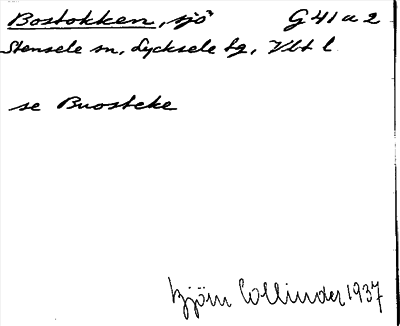 Bostokken, sjö G 41 a 2
Stensele sn, Lycksele tg, Vbt l
se Buosteke
Björn Collinder 1937